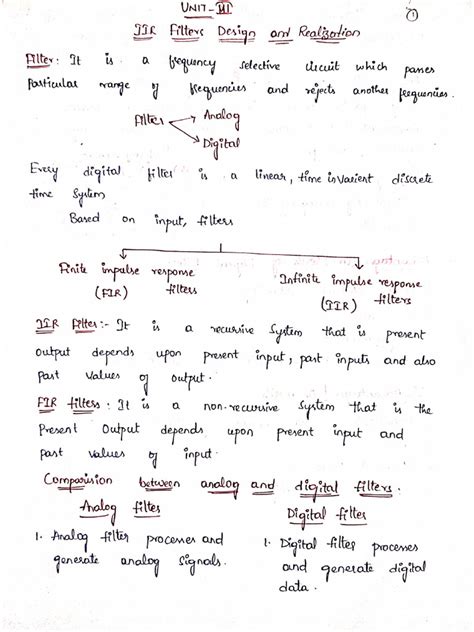 UNIT-III
①
IIR Filters Design and Realization
Filter: It is a frequency selective circuit which passes
particular range of frequencies and rejects another frequencies.
Filter
Analog
Digital
Every digital filter is a linear, time invarient discrete
time system
Based on input, filters
Finite impulse response
(FIR) filters
Infinite impulse response
(IIR) filters
IIR filter:- It is a recursive system that is present
output depends upon present input, past inputs and also
past values of output.
FIR filters: It is a non-recursive system that is the
Present Output depends upon present input and
past values of input.
Comparision between analog and digital filters.
Analog filter
1. Analog filter processes and
generate analog signals.
Digital filter
1. Digital filter processes
and generate digital
data.